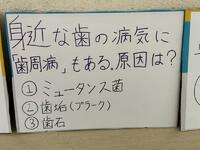 身近な歯の病気に
「歯周病」もある。原因は?
①ミュータンス菌
②歯垢(プラーク)
③歯石